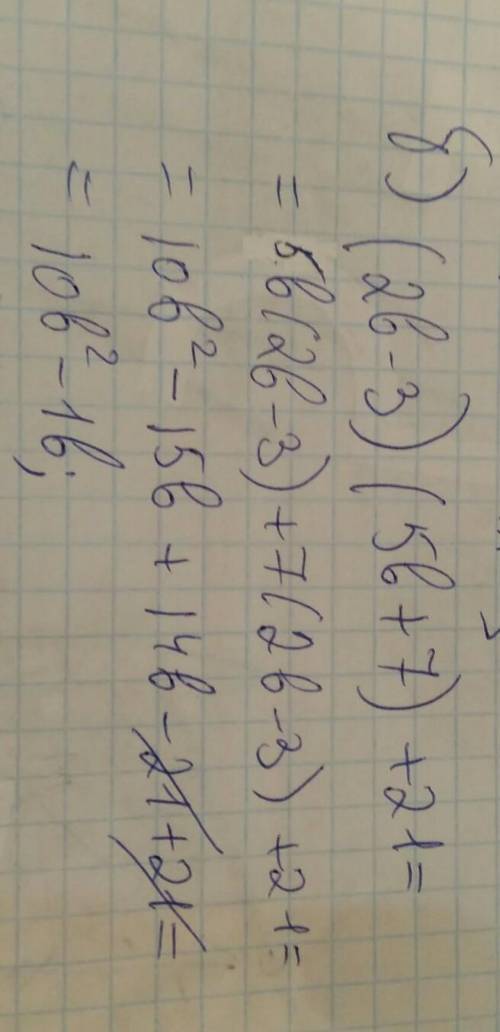 б) (2b-3)(5b+7)+21=
=5b(2b-3)+7(2b-3)+21=
=10b²-15b+14b-21+21=
=10b²-1b;